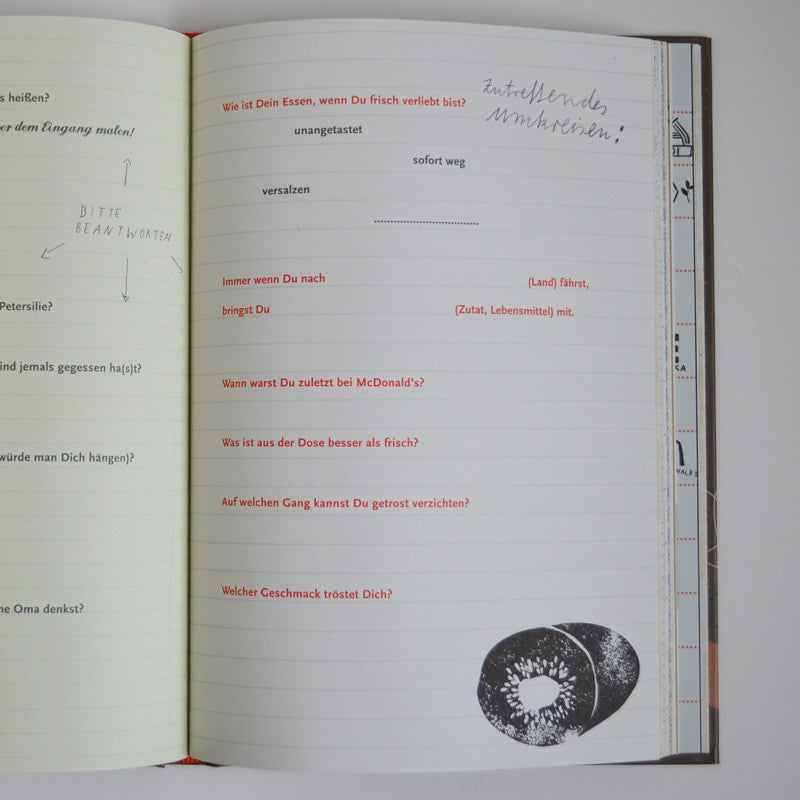 s heißen?
er dem Eingang malen!
BITTE
BEANTWORTEN
Petersilie?
ind jemals gegessen ha(s)t?
würde man Dich hängen)?
ne Oma denkst?
Wie ist Dein Essen, wenn Du frisch verliebt bist?
Zutreffendes
umkreisen!
unangetastet
sofort weg
versalzen
Immer wenn Du nach (Land) fährst,
bringst Du (Zutat, Lebensmittel) mit.
Wann warst Du zuletzt bei McDonald's?
Was ist aus der Dose besser als frisch?
Auf welchen Gang kannst Du getrost verzichten?
Welcher Geschmack tröstet Dich?